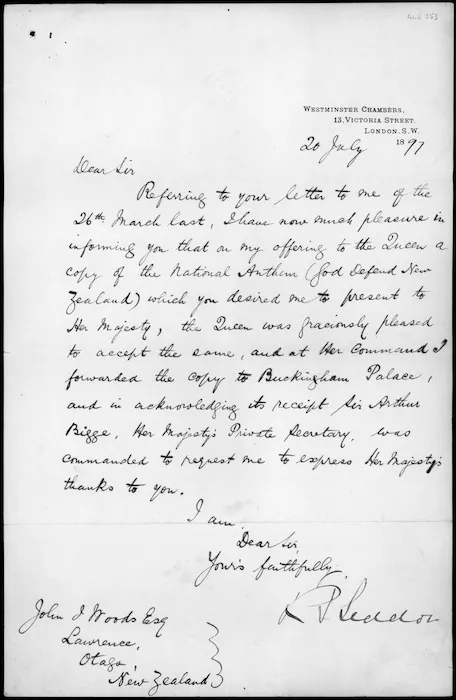 ALS 253
WESTMINSTER CHAMBERS,
13, VICTORIA STREET.
LONDON. S.W.
20 July 1897
Dear Sir
Referring to your letter to me of the
26th March last, I have now much pleasure in
informing you that on my offering to the Queen a
copy of the National Anthem (God Defend New
Zealand) which you desired me to present to
Her Majesty, the Queen was graciously pleased
to accept the same, and at Her Command I
forwarded the copy to Buckingham Palace,
and in acknowledging its receipt Sir Arthur
Bigge, Her Majesty's Private Secretary, was
commanded to request me to express Her Majesty's
thanks to you.
I am
Dear Sir,
Yours faithfully
R J Seddon
John J Woods Esq
Lawrence,
Otago,
New Zealand